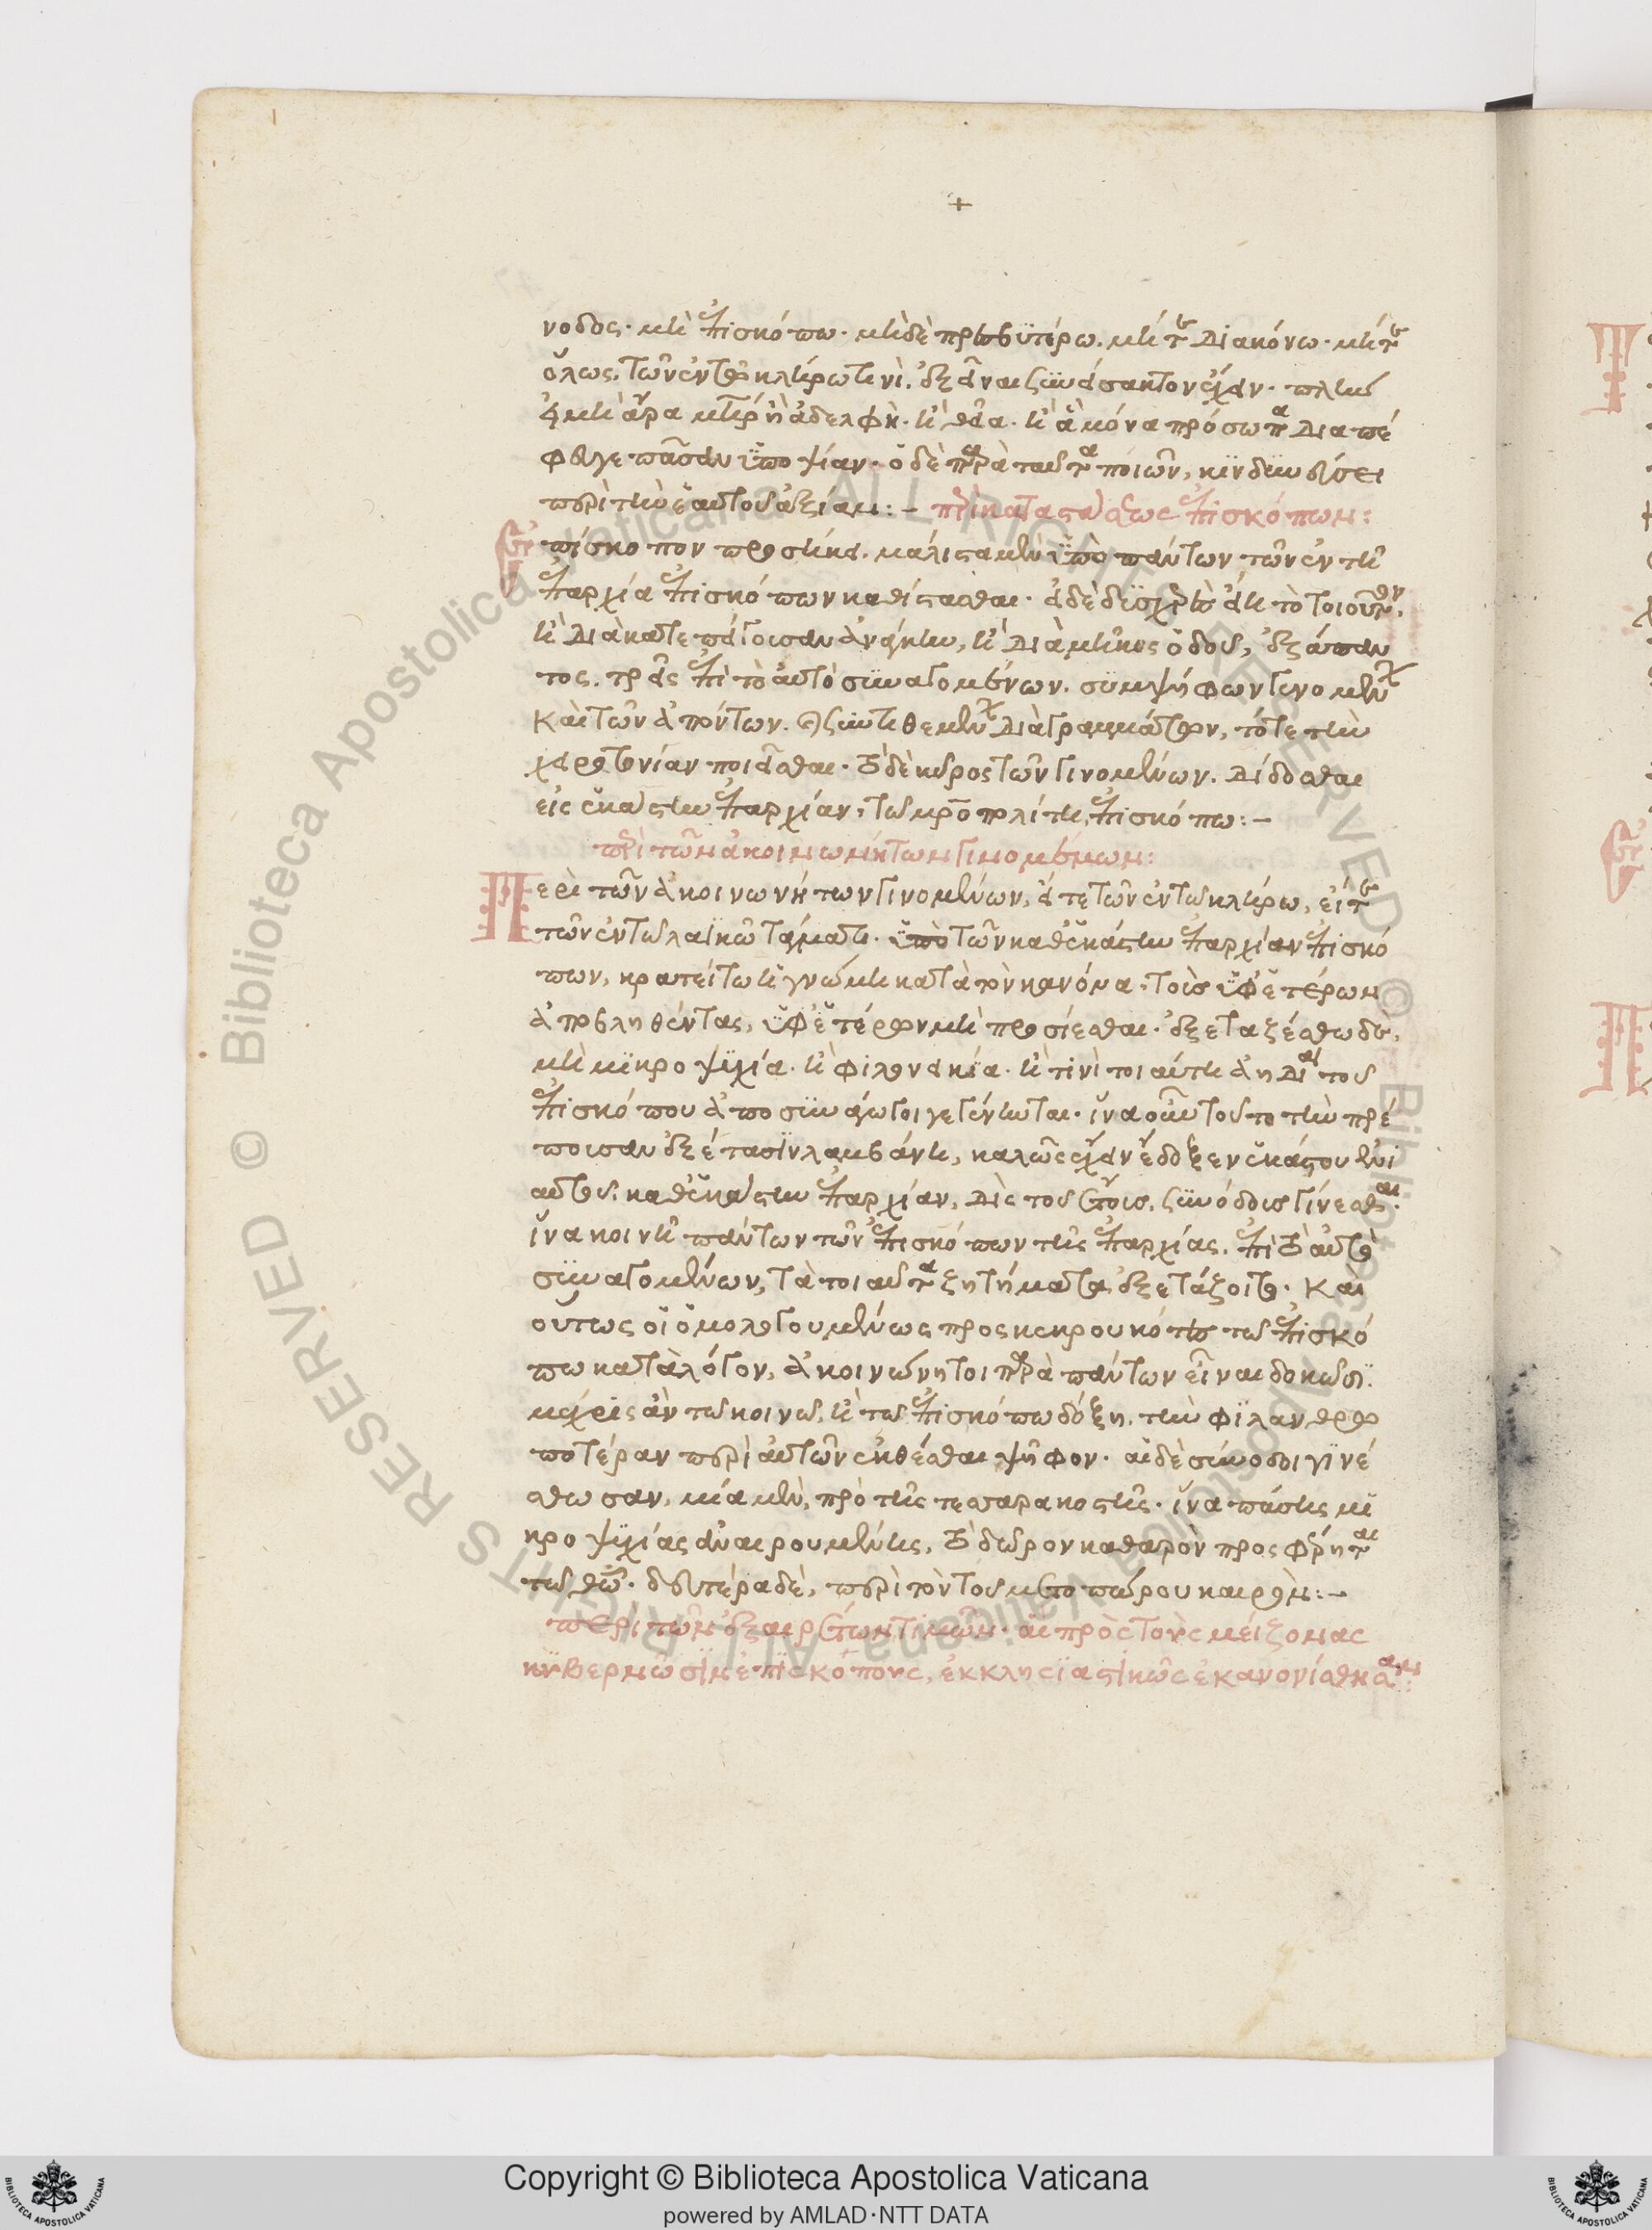 +
νοδος· μὴ ἐπισκόπω· μὴδὲ πρεσβϋτέρω. μήτε διακόνω· μήτε
ὅλως, τῶν ἐν τῶ κλήρω τινὶ. ἐξεῖναι συνείσακτον ἔχειν· πλὴν
εἰ μὴ ἄρα μητέρ ἢ ἀδελφὴ· ἢ θεία· ἢ ἃ μόνα πρόσωπα διαπέ
φευγε πᾶσαν ὑποψίαν· ὁ δὲ παρὰ ταῦτα ποιῶν, κινδυνεύσει
περὶ τὴν ἑαυτοῦ ἀξίαν:– περὶ καταστάσεως ἐπισκόπων:
Ἐπίσκοπον προσήκει. μάλιστα μὲν ὑπὸ πάντων τῶν ἐν τῆ
ἐπαρχία ἐπισκόπων καθίστασθαι· εἰ δὲ δυσχερὲς εἴη τὸ τοιοῦτον,
ἢ διὰ κατεπείγουσαν ἀνάγκην, ἢ διὰ μῆκος ὁδοῦ, ἐξ ἅπαν
τος. τρεῖς ἐπὶ τὸ αὐτὸ συναγομένων. συμψήφων γινομένων
καὶ τῶν ἀπόντων. καὶ συντιθεμένων διὰ γραμμάτων, τότε τὴν
χειροτονίαν ποιεῖσθαι· τὸ δὲ κῦρος τῶν γινομένων. δίδοσθαι
εἰς ἑκάστην ἐπαρχίαν, τῶ μητροπολίτη ἐπισκόπω:–
περὶ τῶν ἀκοινωνήτων γινομένων:
Περὶ τῶν ἀκοινωνήτων γινομένων, εἴτε τῶν ἐν τῶ κλήρω, εἴτε
τῶν ἐν τῶ λαϊκῶ τάγματι· ὑπὸ τῶν καθ' ἑκάστην ἐπαρχίαν ἐπισκό
πων, κρατείτω ἡ γνώμη κατὰ τὸν κανόνα, τοὺς ὑφ' ἑτέρων
ἀποβληθέντας, ὑφ' ἑτέρων μὴ προσίεσθαι· ἐξεταζέσθω δὲ,
μὴ μικροψυχία· ἢ φιλονεικία· ἢ τινὶ τοιαύτη ἀηδία τοῦ
ἐπισκόπου ἀποσυνάγωγοι γεγένηται· ἵνα οὖν τοῦτο τὴν πρέ
πουσαν ἐξέτασιν λαμβάνη, καλῶς ἔχειν ἔδοξεν ἑκάστου ἐνι
αυτοῦ. καθ' ἑκάστην ἐπαρχίαν, δὶς τοῦ ἔτους, συνόδους γίνεσθαι.
ἵνα κοινῆ πάντων τῶν ἐπισκόπων τῆς ἐπαρχίας. ἐπὶ τὸ αὐτὸ
συναγομένων, τὰ τοιαῦτα ζητήματα ἐξετάζοιτο· καὶ
οὕτως οἱ ὁμολογουμένως προσκεκρουκότες τῶ ἐπισκό
πω κατὰ λόγον, ἀκοινώνητοι παρὰ πάντων εἶναι δοκῶσι.
μέχρις ἂν τῶ κοινῶ, ἢ τῶ ἐπισκόπω δόξη, τὴν φιλανθρω
ποτέραν περὶ αὐτῶν ἐκθέσθαι ψῆφον· αἱ δὲ σύνοδοι γινέ
σθωσαν, μία μὲν, πρὸ τῆς τεσσαρακοστῆς· ἵνα πάσης μι
κροψυχίας ἀναιρουμένης, τὸ δῶρον καθαρὸν προσφέρηται
τῶ θεῶ· δευτέρα δὲ, περὶ τὸν τοῦ μετοπώρου καιρόν:–
περὶ τῶν ἐξαιρέτων τιμῶν· αἳ πρὸς τοὺς μείζονας
κυβερνῶσιν ἐπισκόπους, ἐκκλησιαστικῶς ἐκανονίσθησαν:
Copyright © Biblioteca Apostolica Vaticana
powered by AMLAD·NTT DATA